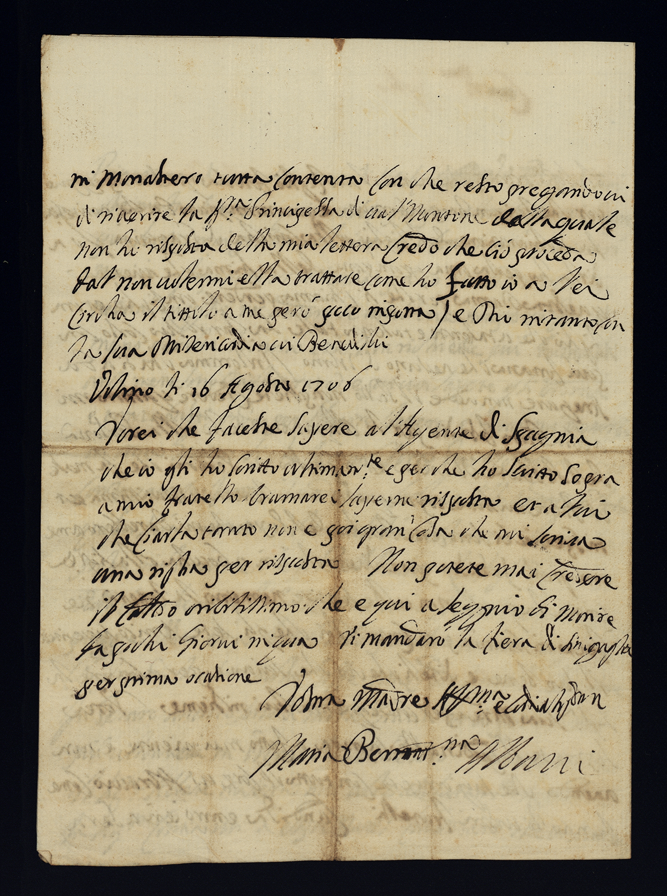 mi Monastero tutta Contenta Con che resto pregandovi
di riaprire la Sra Principessa di dalla quale
non ho risposta della mia lettera Credo che Ciò proceda
dal non volermi ella trattare come ho fatto io a lei
Circha il tittolo a me però poco nigotta) e Dio mi
la Sua Misericordia vi Benedichi
Urbino li 16 Agosto 1706
Vorei che faceste Sapere al Agente di Spagnia
che io gli ho Scritto ultimamte e per che ho Scritto Sopra
a mio fratello bramarei Saperne risposta et a lui
che Ciarla tanto non è poi gran Cosa che mi Scriva
una righa per risposta Non potete mai Credere
il Caldo che è qui a Segnio di morire
fa pochi Giorni Vi mandarò la fiera di Sinigaglia
per prima ocatione
Vostra Madre Affma
Maria Bernardna Albani